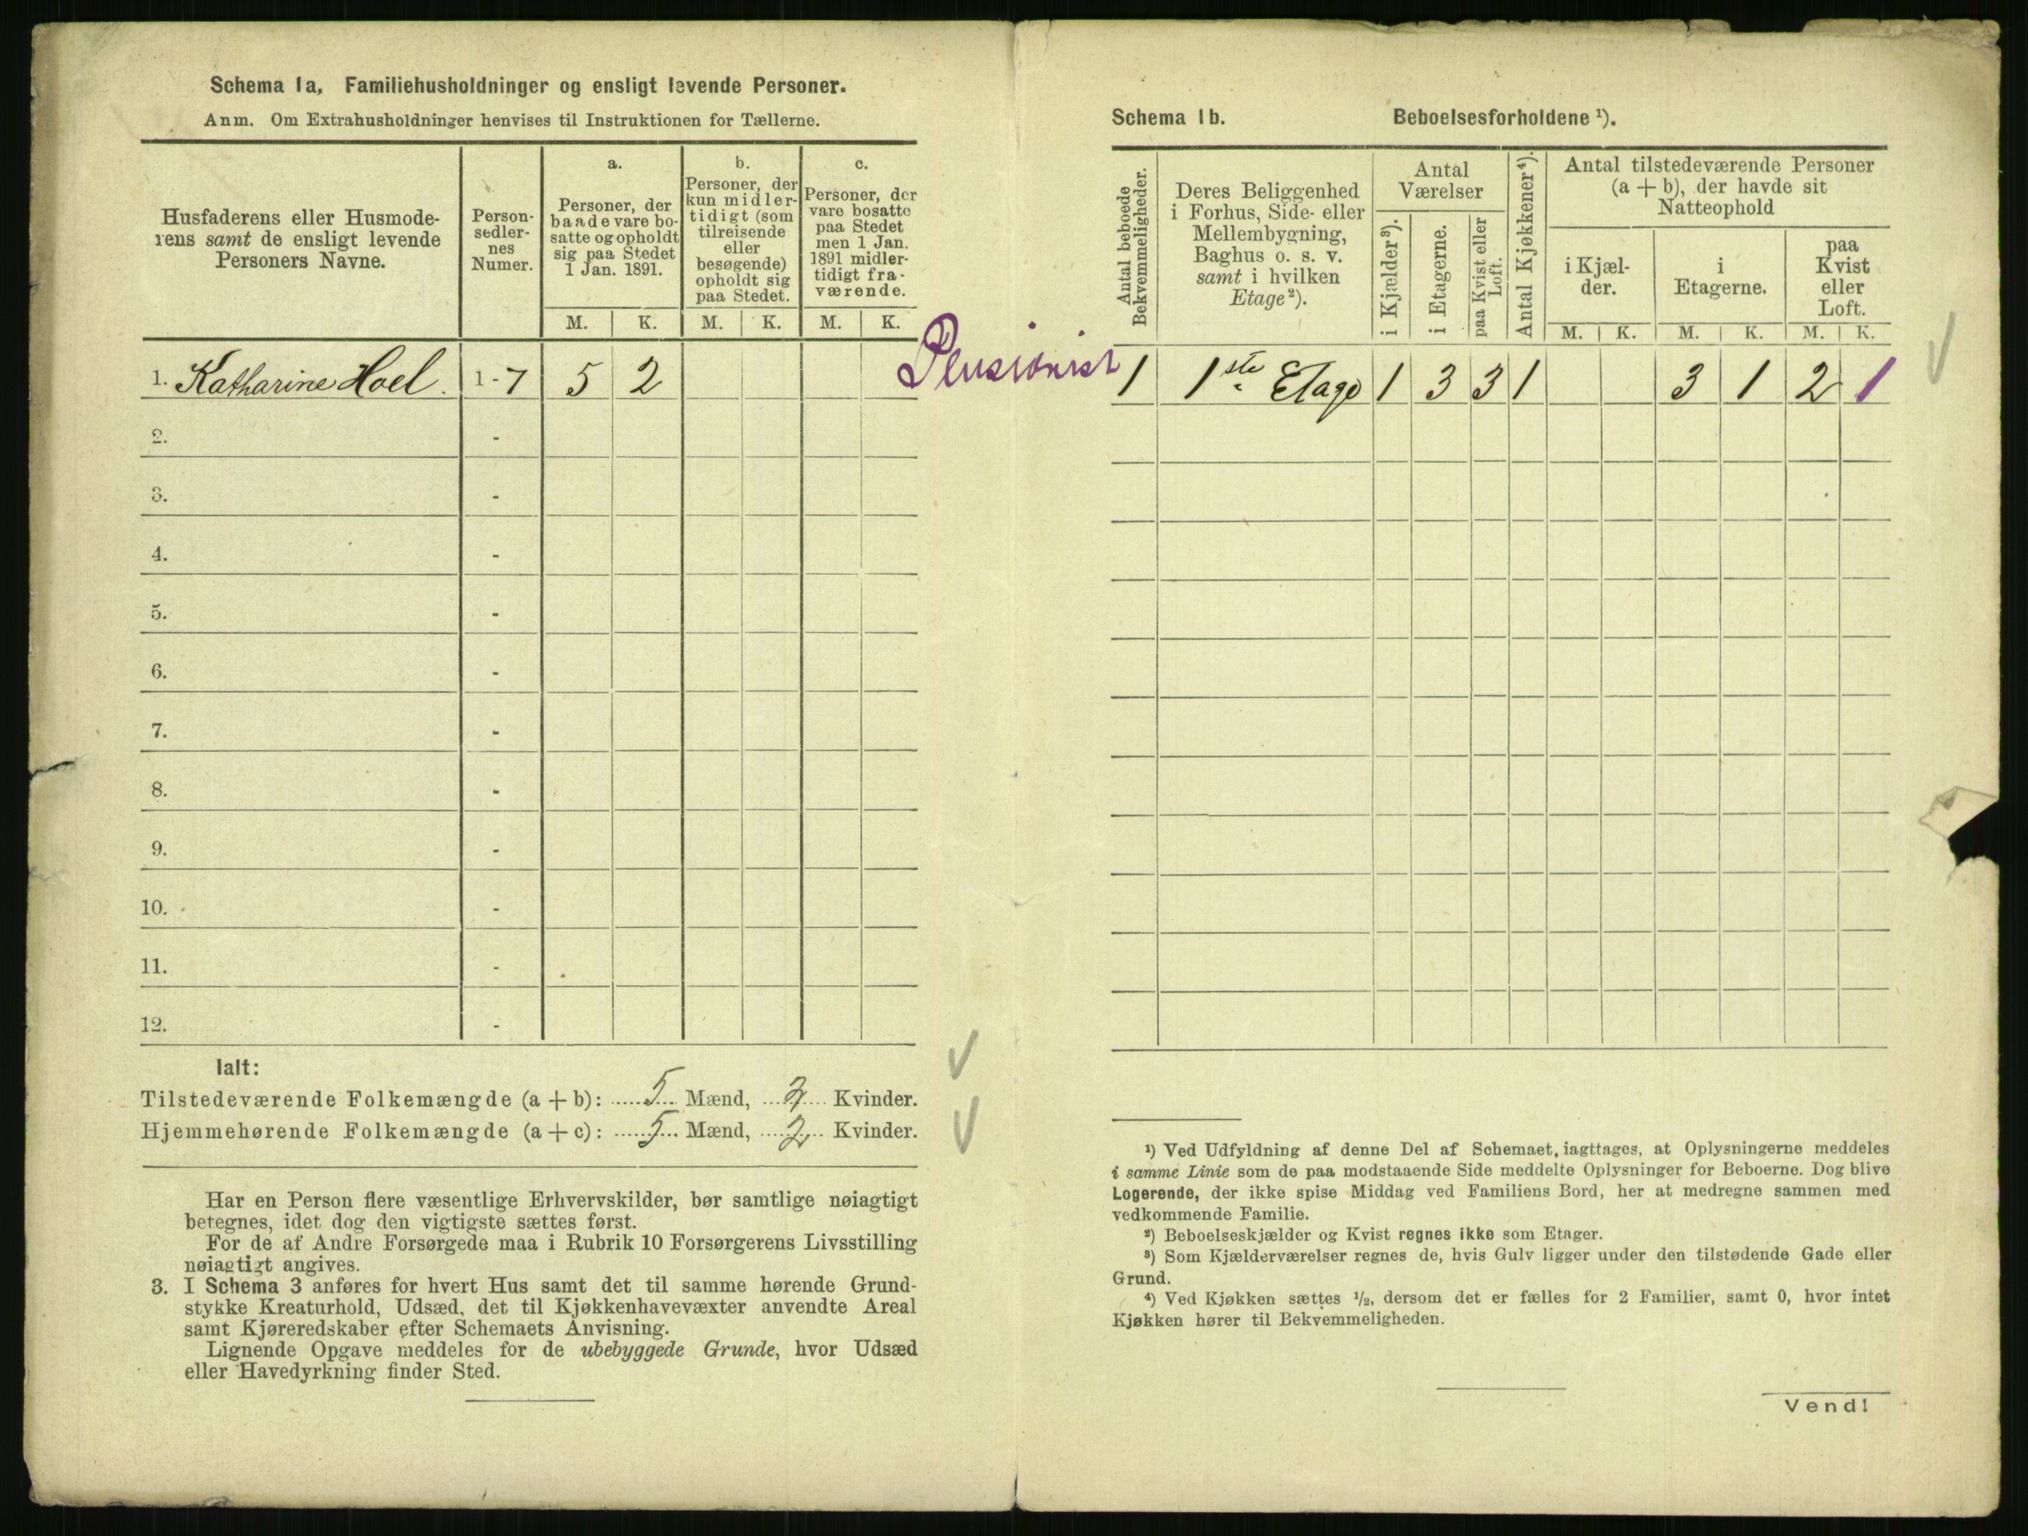 Schema 1a. Familiehusholdninger og ensligt levende Personer.
Anm. Om Extrahusholdninger henvises til Instruktionen for Tællerne.
Husfaderens eller Husmode-
rens samt de ensligt levende
Personers Navne.
Person-
sedler-
nes
Numer.
a.
Personer, der
baade vare bo-
satte og opholdt
sig paa Stedet
1 Jan. 1891.
b.
Personer, der
kun midler-
tidigt (som
tilreisende
eller
besøgende)
opholdt sig
paa Stedet.
c.
Personer, der
vare bosatte
paa Stedet
men 1 Jan.
1891 midler-
tidigt fra-
værende.
M. K. M. K. M. K.
1. Katharine Hoel. 1 - 7 5 2
Pensionist
2. -
3. -
4. -
5. -
6. -
7. -
8. -
9. -
10. -
11. -
12. -
Ialt:
Tilstedeværende Folkemængde (a + b): 5 Mænd, 2 Kvinder.
Hjemmehørende Folkemængde (a + c): 5 Mænd, 2 Kvinder.
Har en Person flere væsentlige Erhvervskilder, bør samtlige nøiagtigt
betegnes, idet dog den vigtigste sættes først.
For de af Andre Forsørgede maa i Rubrik 10 Forsørgerens Livsstilling
nøiagtigt angives.
3. I Schema 3 anføres for hvert Hus samt det til samme hørende Grund-
stykke Kreaturhold, Udsæd, det til Kjøkkenhavevæxter anvendte Areal
samt Kjøreredskaber efter Schemaets Anvisning.
Lignende Opgave meddeles for de ubebyggede Grunde, hvor Udsæd
eller Havedyrkning finder Sted.
Schema 1b. Beboelsesforholdene ¹).
Antal beboede
Bekvemmeligheder.
Deres Beliggenhed
i Forhus, Side- eller
Mellembygning,
Baghus o. s. v.
samt i hvilken
Etage ²).
Antal
Værelser
i Kjælder ³).
i Etagerne.
paa Kvist eller
Loft.
Antal Kjøkkener ⁴).
Antal tilstedeværende Personer
(a + b), der havde sit
Natteophold
i Kjæl-
der.
i
Etagerne.
paa
Kvist
eller
Loft.
M. K. M. K. M. K.
1 1ste Etage 1 3 3 1 3 1 2 1
¹) Ved Udfyldning af denne Del af Schemaet iagttages, at Oplysningerne meddeles
i samme Linie som de paa modstaaende Side meddelte Oplysninger for Beboerne. Dog blive
Logerende, der ikke spise Middag ved Familiens Bord, her at medregne sammen med
vedkommende Familie.
²) Beboelseskjælder og Kvist regnes ikke som Etager.
³) Som Kjælderværelser regnes de, hvis Gulv ligger under den tilstødende Gade eller
Grund.
⁴) Ved Kjøkken sættes ½, dersom det er fælles for 2 Familier, samt 0, hvor intet
Kjøkken hører til Bekvemmeligheden.
Vend!